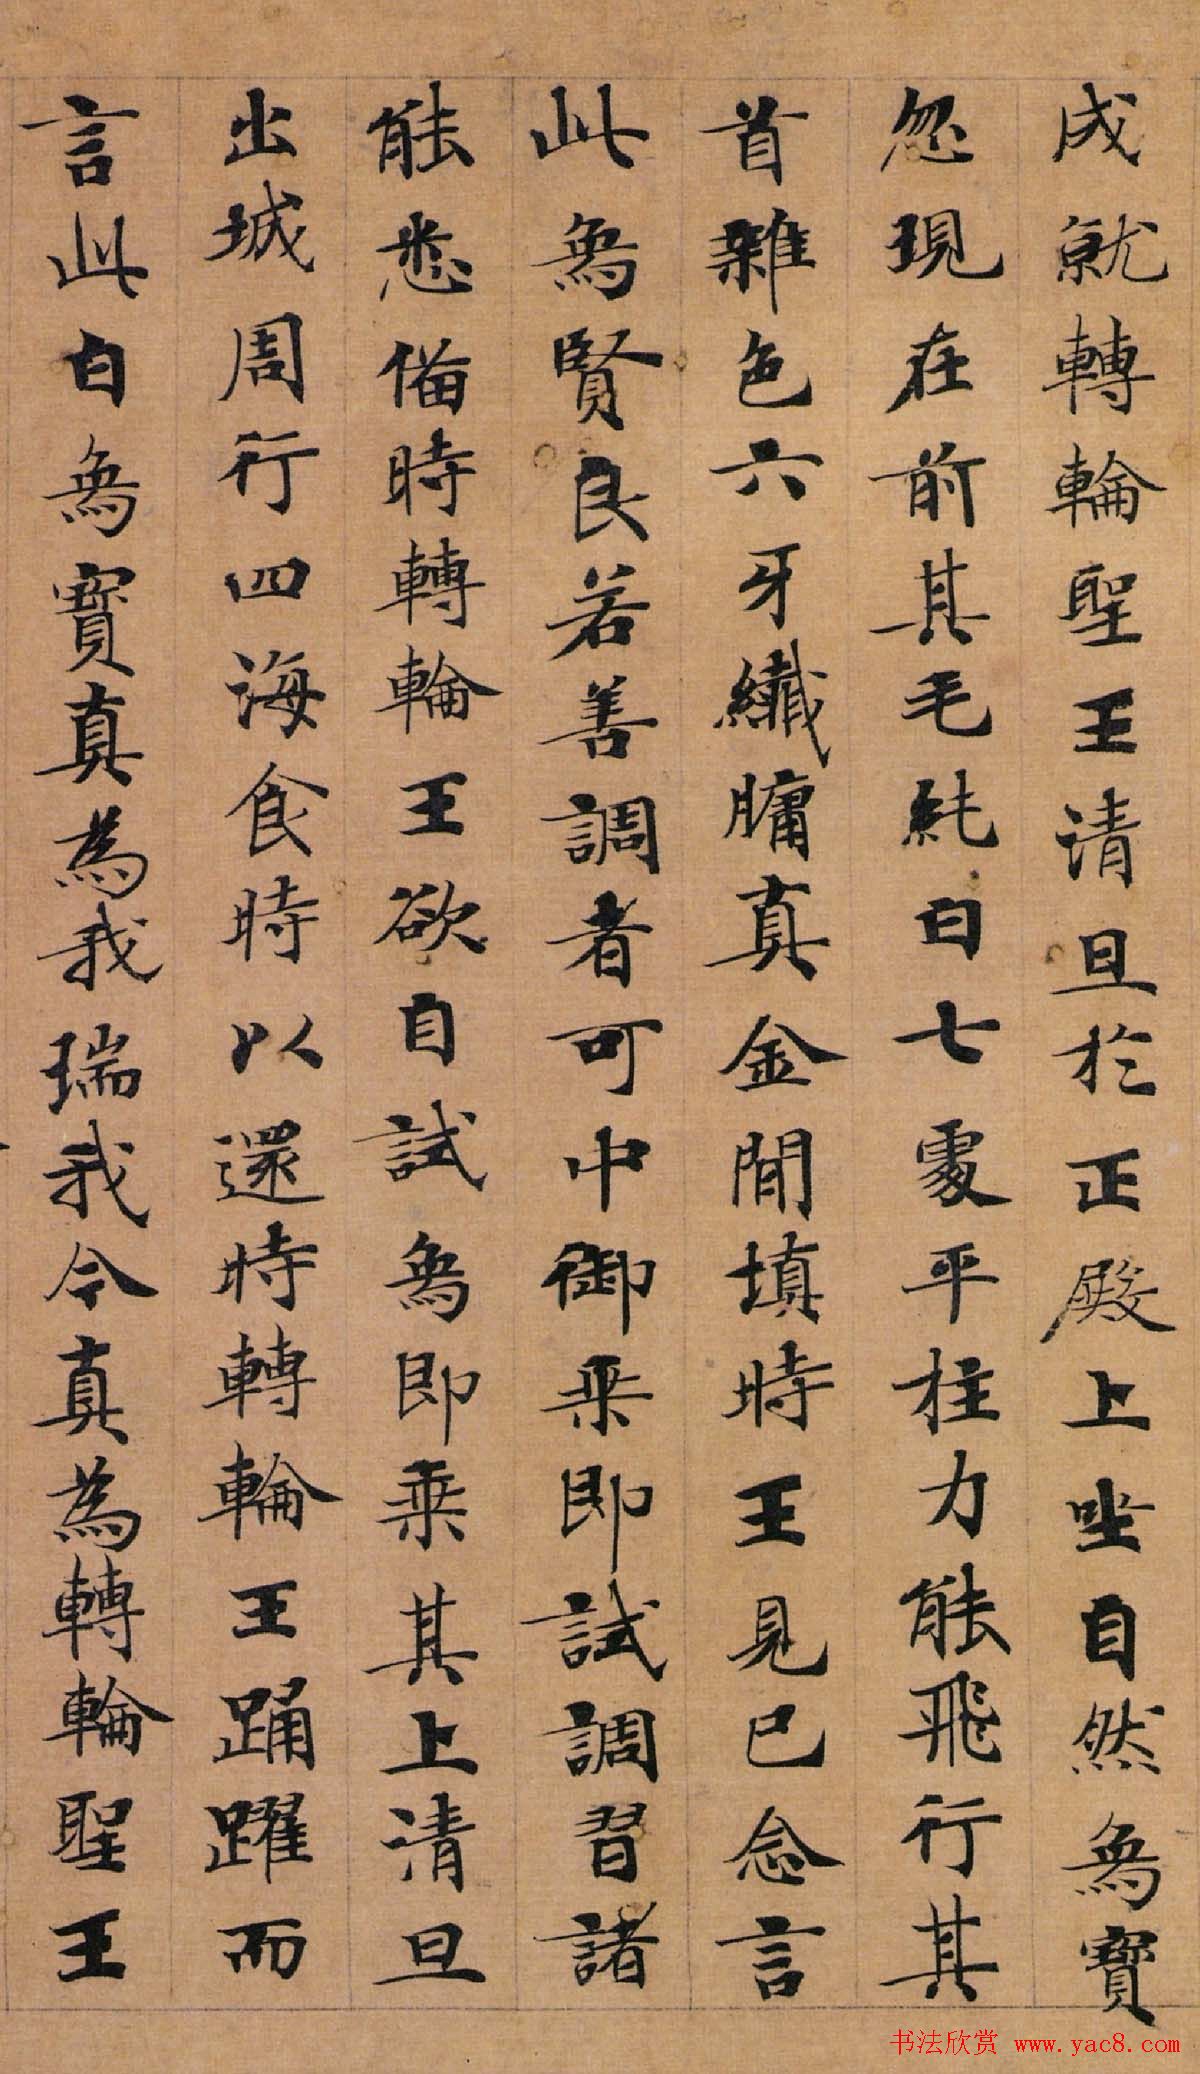 成就轉輪聖王清旦於正殿上坐自然烏寶
忽現在前其毛純白七處平柱力能飛行其
首雜色六牙纖𦟛真金間填時王見已念言
此烏賢良若善調者可中御乘即試調習諸
能悉俻時轉輪王欲自試烏即乘其上清旦
出城周行四海食時以還時轉輪王踊躍而
言此白烏寶真為我瑞我今真為轉輪聖王
书法欣赏 www.yac8.com